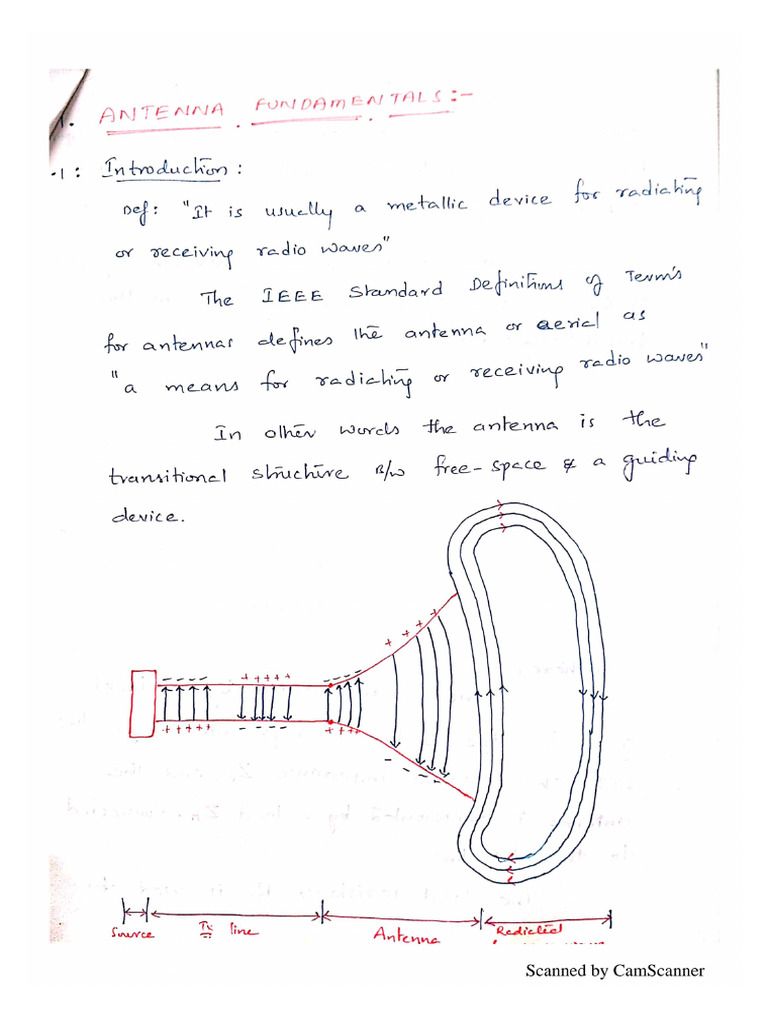 1. ANTENNA FUNDAMENTALS :-
-1 : Introduction :
Def: "It is usually a metallic device for radiating
or receiving radio waves"
The IEEE Standard Definitions of Term's
for antennas defines the antenna or aerial as
"a means for radiating or receiving radio waves"
In other words the antenna is the
transitional structure B/w free-space & a guiding
device.
+ + + +
- - - -
+ + + + +
- - - -
- - - - -
+ + + +
- - - -
+ + + +
Source Tx line Antenna Radiated
Scanned by CamScanner